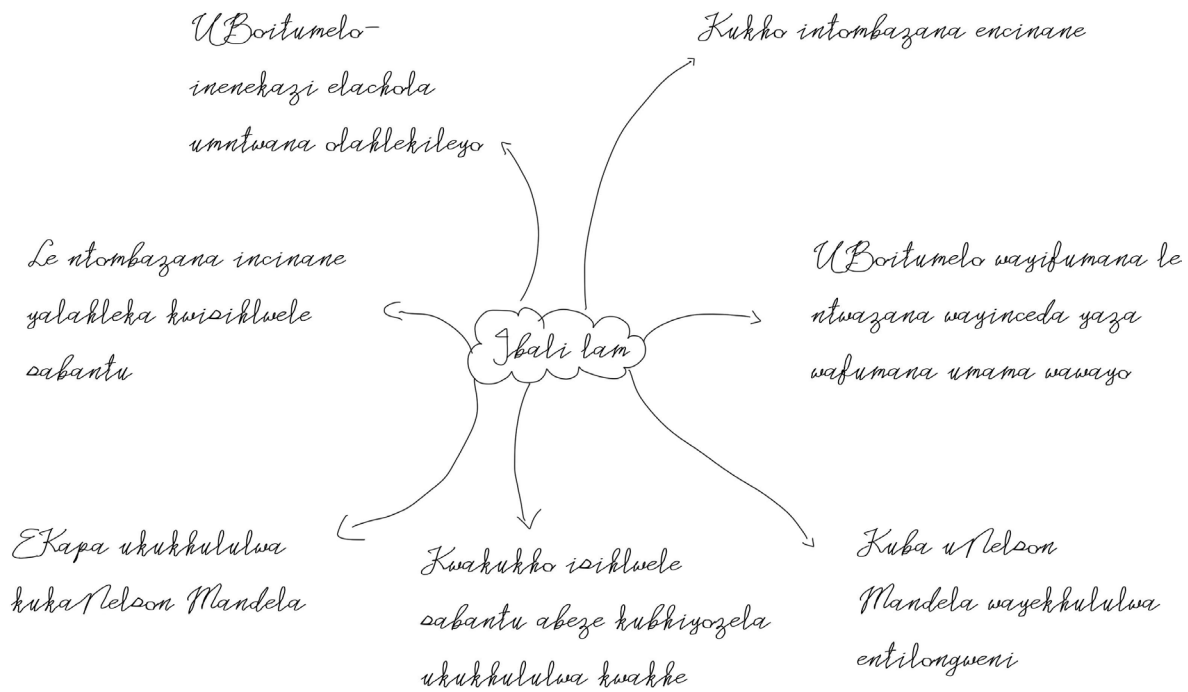 UBoitumelo-
inenekazi elachola
umntwana olahlekileyo
Kukho intombazana encinane
Le ntombazana incinane
yalahleka kwisihlwele
sabantu
Ibali lam
UBoitumelo wayifumana le
ntwazana wayinceda yaza
wafumana umama wawayo
EKapa ukukhululwa
kukaNelson Mandela
Kwakukho isihlwele
sabantu abeze kubhiyozela
ukukhululwa kwakhe
Kuba uNelson
Mandela wayekhululwa
entilongweni